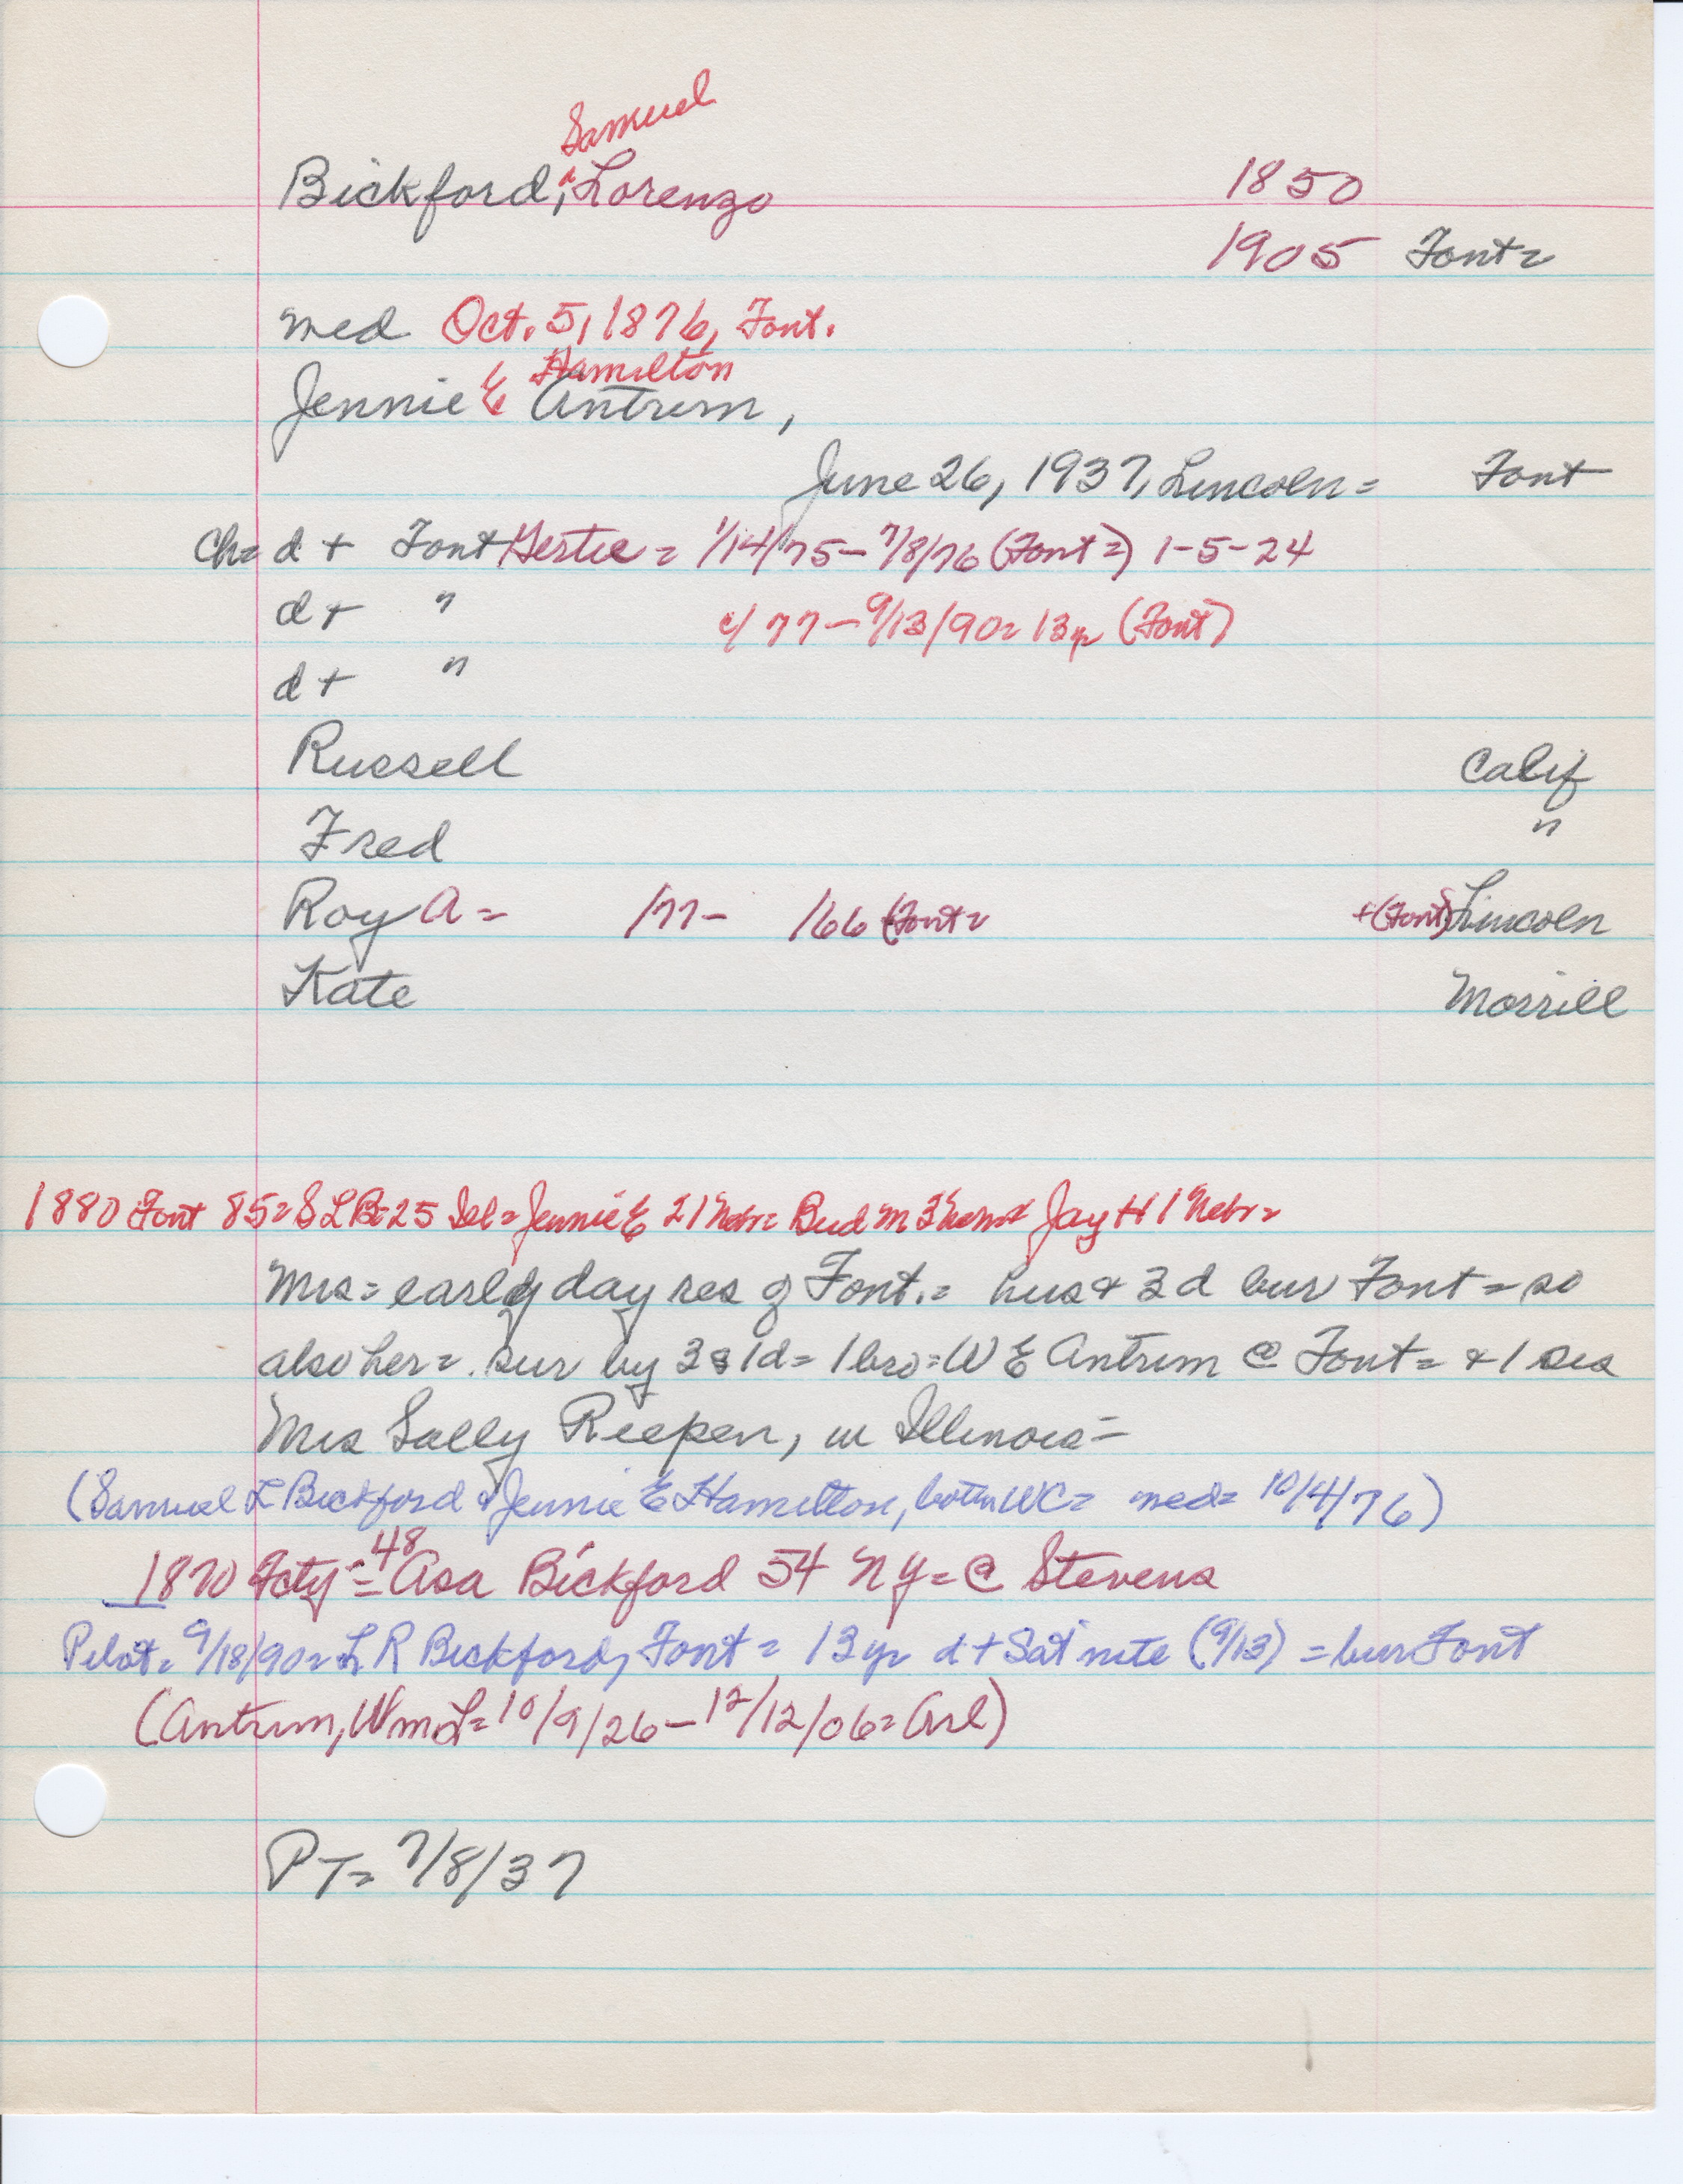 Samuel
Bickford, ^ Lorenzo 1850
1905 Font=
med Oct. 5, 1876, Font.
Hamilton
Jennie E Antrim,
June 26, 1937, Lincoln = Font
Ch= d + Font Gertie = 1/14/75 - 7/8/76 (Font=) 1-5-24
d + " c/ 77 - 9/13/90 = 13 yr (Font)
d + "
Russell Calif
Fred "
Roy A = /77- /66 (Font= +(Font) Lincoln
Kate Morrill
1880 Font 85= S L B= 25 Ill= Jennie E 21 Nebr= Bud M 3 Jay H 1 Nebr=
Mrs= early day res of Font.= hus & 3 d bur Font = so
also her = sur by 3 s 1 d= 1 bro= W E Antrim @ Font= & 1 sis
Mrs Sally Reepen, in Illinois=
(Samuel L Bickford & Jennie E Hamilton, both WC= med= 10/4/76)
48
1870 Fcty = Asa Bickford 54 NY= @ Stevens
Pilot= 9/18/90= L R Bickford, Font = 13 yr d + Sat nite (9/13) = bur Font
(Antrim, Wm L= 10/9/26 - 12/12/06= Arl)
PT= 7/8/37